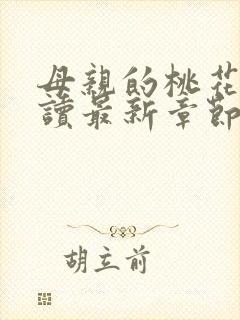 母親的桃花
讀最新章節
胡立前